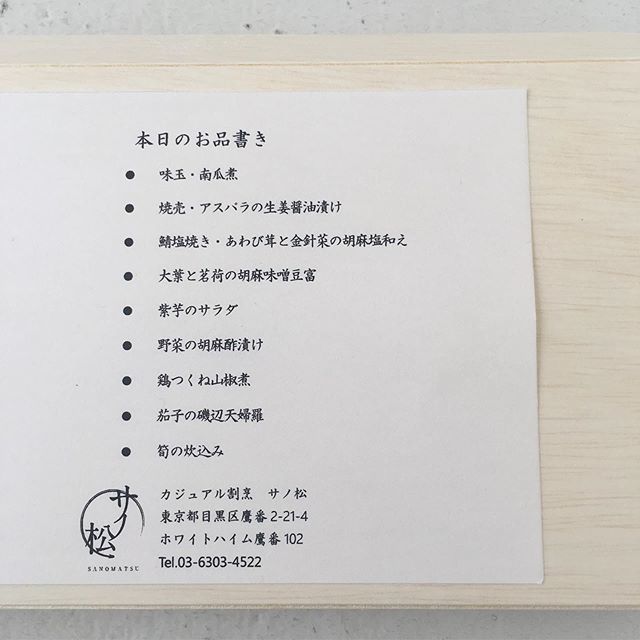 本日のお品書き
● 味玉・南瓜煮
● 焼売・アスパラの生姜醤油漬け
● 鯖塩焼き・あわび茸と金針菜の胡麻塩和え
● 大葉と茗荷の胡麻味噌豆富
● 紫芋のサラダ
● 野菜の胡麻酢漬け
● 鶏つくね山椒煮
● 茄子の磯辺天婦羅
● 筍の炊込み
サノ松
SANOMATSU
カジュアル割烹 サノ松
東京都目黒区鷹番2-21-4
ホワイトハイム鷹番 102
Tel.03-6303-4522